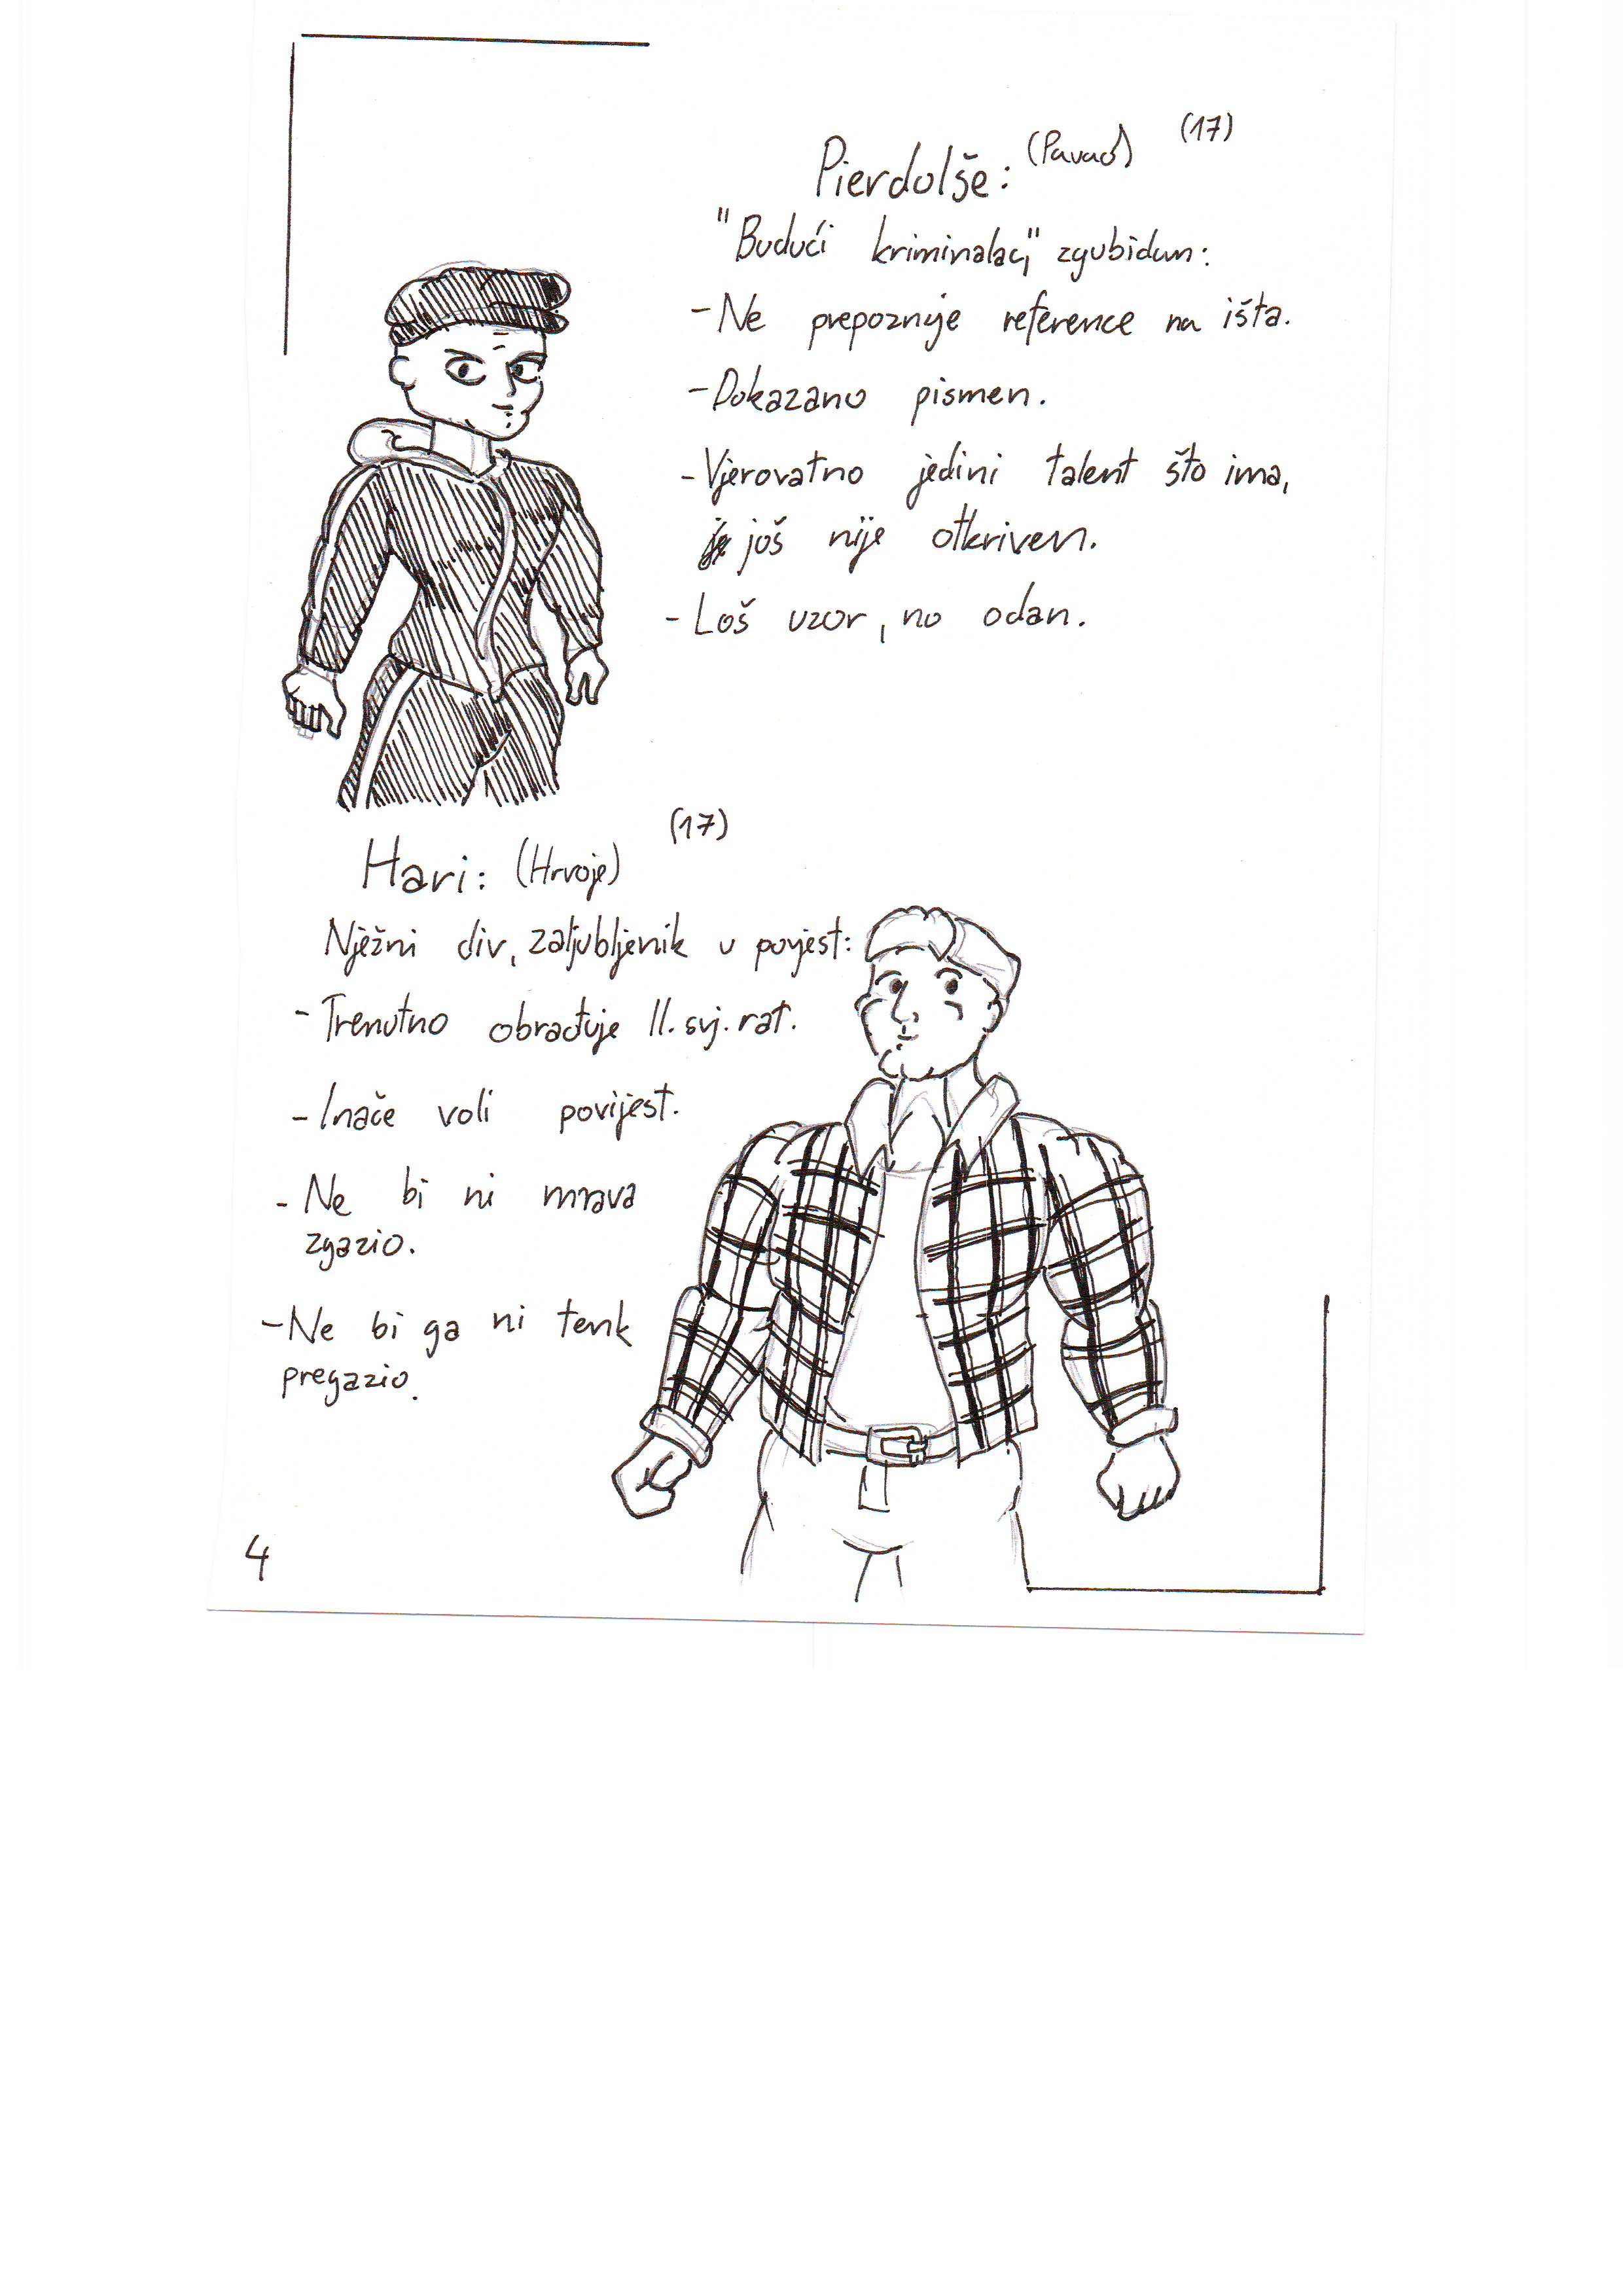 Pierdolše: (Pavao) (17)
"Budući kriminalac," zgubidan:
- Ne prepoznaje reference na išta.
- Dokazano pismen.
- Vjerovatno jedini talent što ima,
još nije otkriven.
- Loš uzor, no odan.
Hari: (Hrvoje) (17)
Nježni div, zaljubljenik u povjest:
- Trenutno obrađuje II. svj. rat.
- Inače voli povijest.
- Ne bi ni mrava
zgazio.
- Ne bi ga ni tenk
pregazio.
4